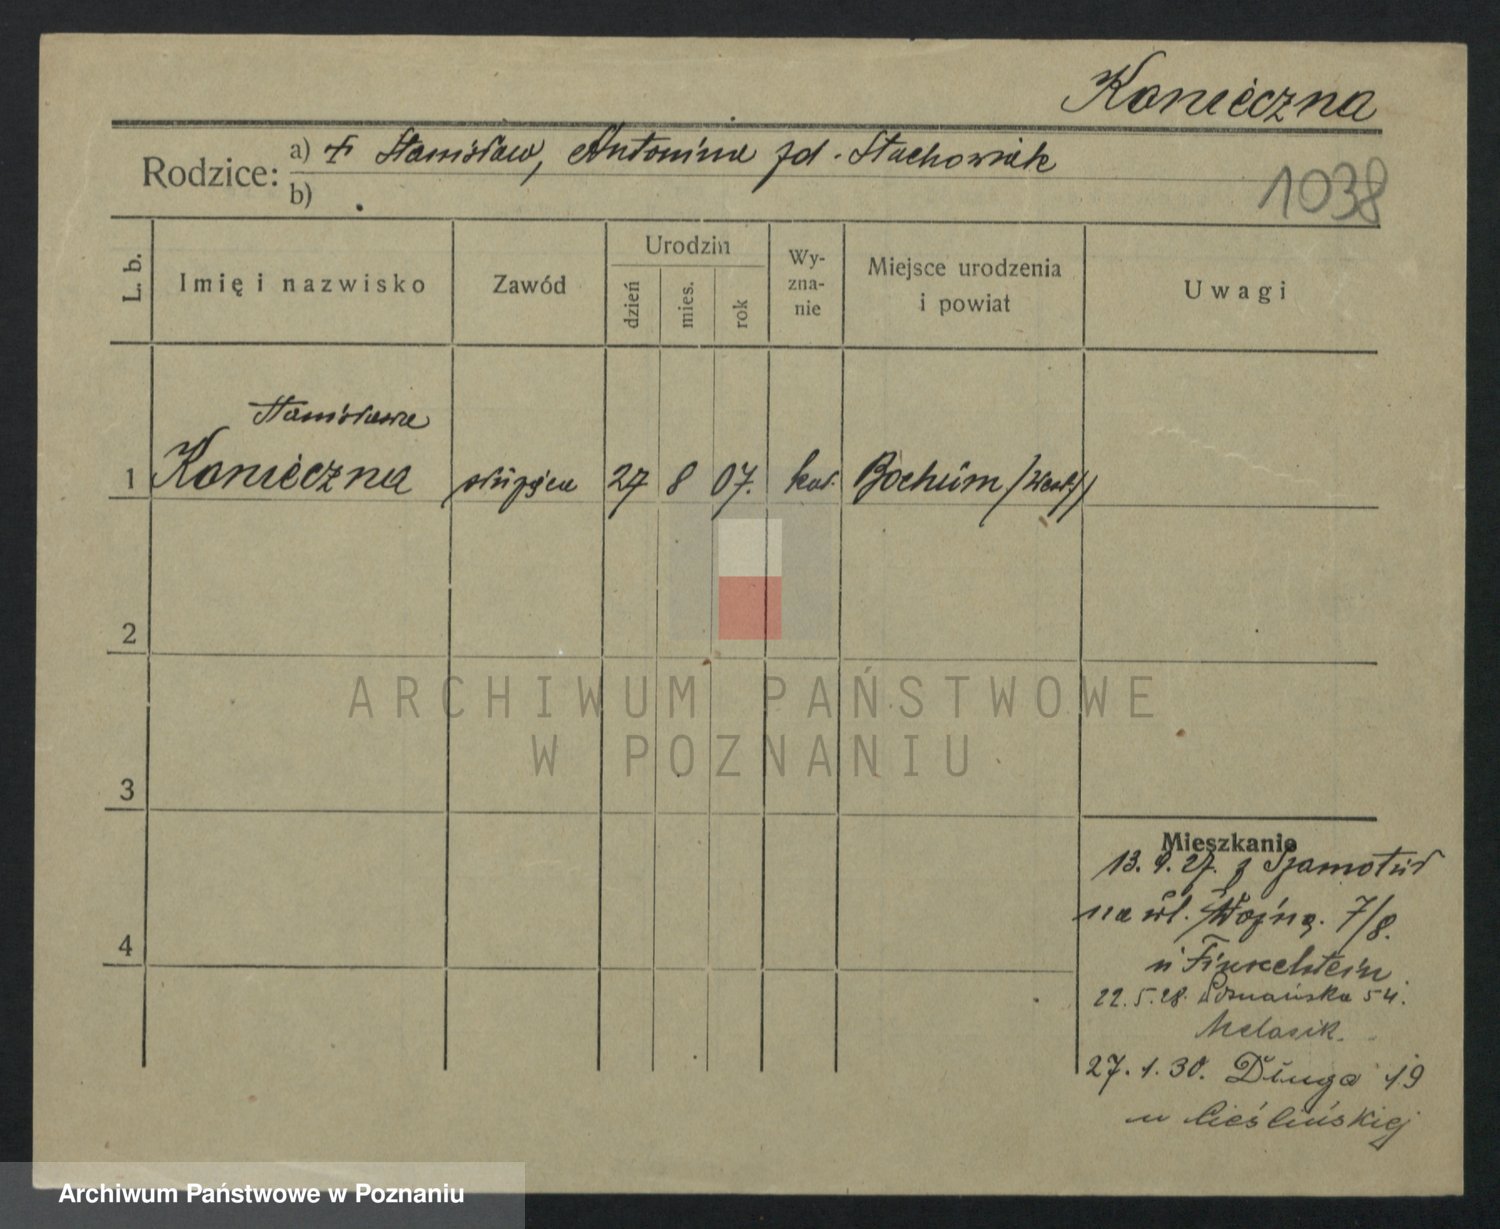 Konieczna
Rodzice: a) † Stanisław, Antonina zd. Stachowiak
b)
1038
L. b.
Imię i nazwisko
Zawód
Urodzin
dzień
mies.
rok
Wy-
zna-
nie
Miejsce urodzenia
i powiat
Uwagi
Stanisława
1 Konieczna służąca 27 8 07. kat. Bochum /Westf/
2
3
4
ARCHIWUM PAŃSTWOWE
W POZNANIU
Mieszkanie
13. 9. 27. z Szamotuł
na ul. Wojną. 7/8.
u Finkelstein
22. 5. 28. Poznańska 54.
Melasik.
27. 1. 30. Długa 19
u Cieślińskiej
Archiwum Państwowe w Poznaniu